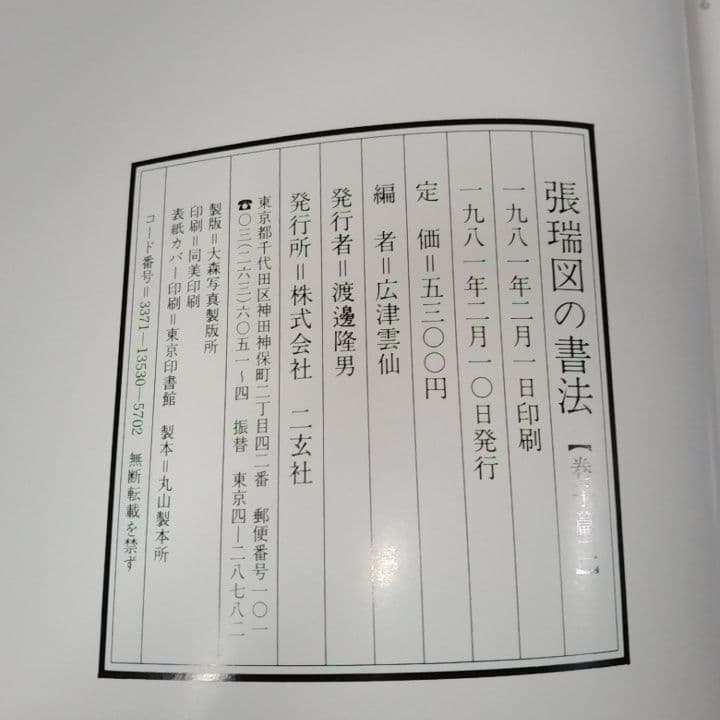 張瑞図の書法【巻子篇
一九八一年二月一日印刷
一九八一年二月一〇日発行
定　価＝五三〇〇円
編　者＝広津雲仙
発行者＝渡邊隆男
発行所＝株式会社　二玄社
東京都千代田区神田神保町二丁目四二番　郵便番号一〇一
☎〇三(二六三)六〇五一〜四　振替　東京四—二八七八二
製版＝大森写真製版所
印刷＝同美印刷
表紙カバー印刷＝東京印書館　製本＝丸山製本所
コード番号＝3371—13530—5702　無断転載を禁ず